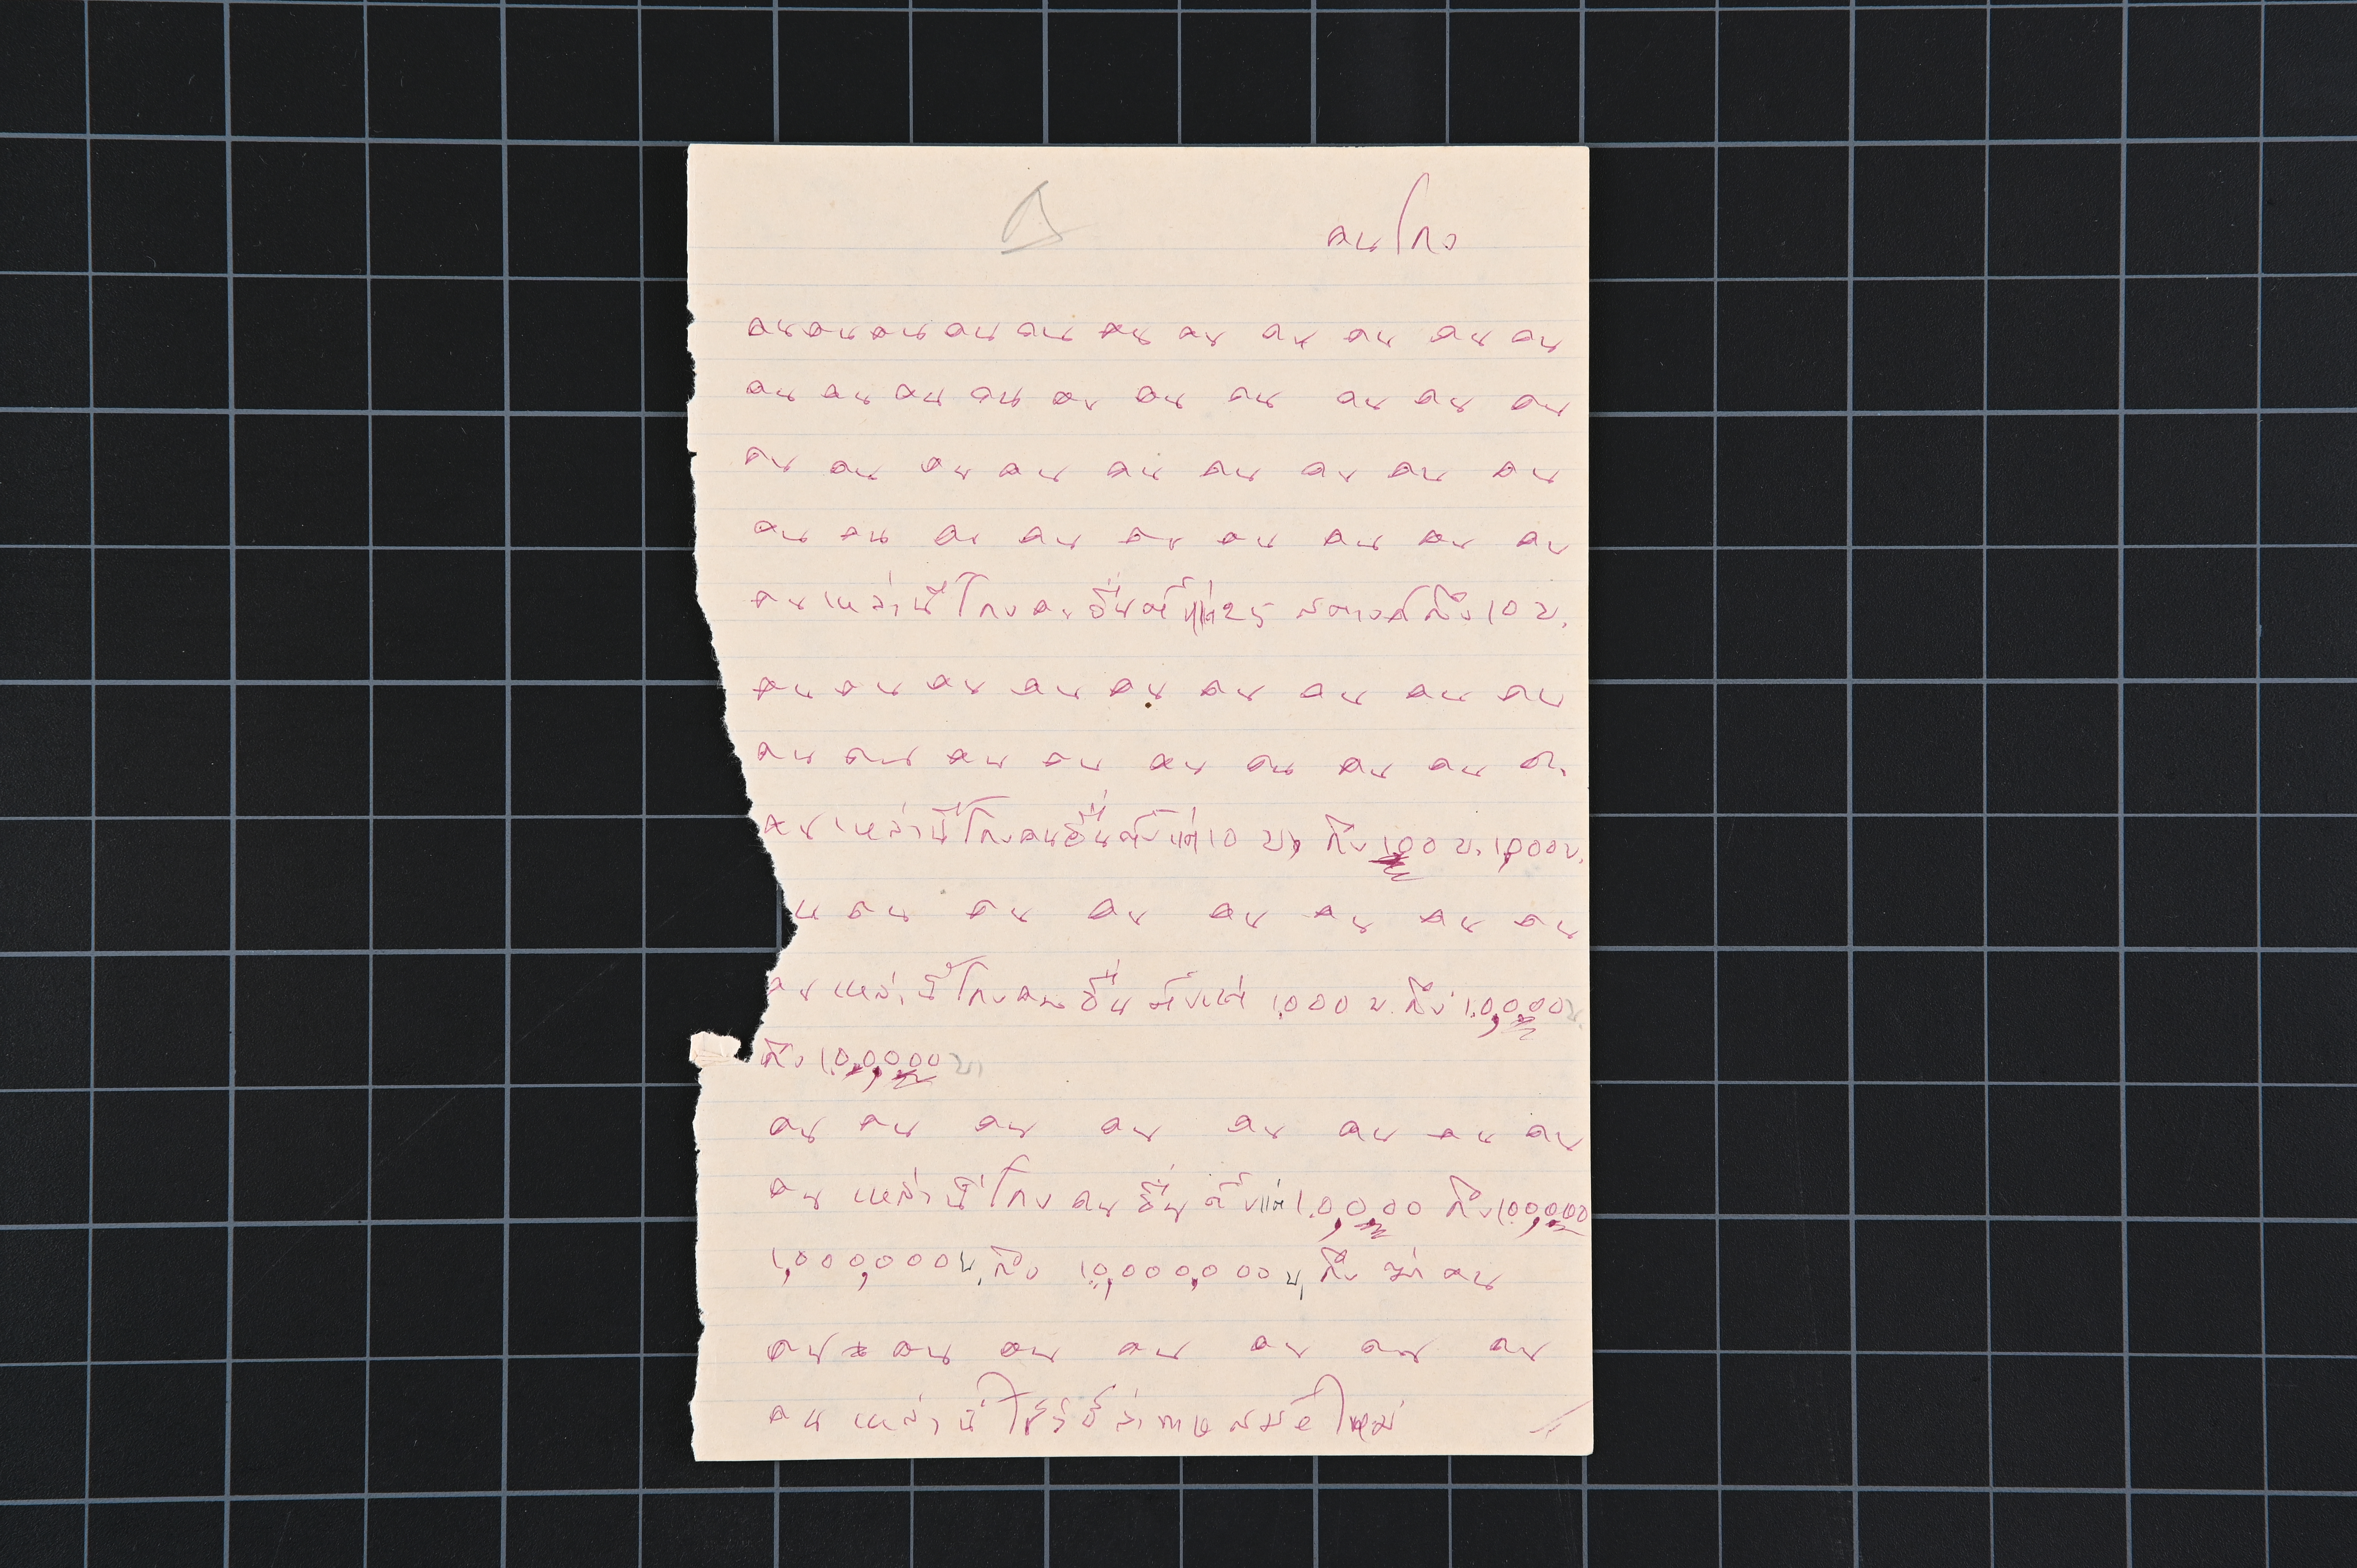 คนโกง
คน คน คน คน คน คน คน คน คน คน คน
คน คน คน คน คน คน คน คน คน คน
คน คน คน คน คน คน คน คน คน
คน คน คน คน คน คน คน คน คน
คนเหล่านี้โกงคนอื่นตั้งแต่ 25 สตางค์ถึง 10 บ.
คน คน คน คน คน คน คน คน คน
คน คน คน คน คน คน คน คน คน
คนเหล่านี้โกงคนอื่นตั้งแต่ 10 บ, ถึง 100 บ. 1,000 บ.
น คน คน คน คน คน คน คน
คนเหล่านี้โกงคนอื่น ตั้งแต่ 1,000 บ. ถึง 10,000 บ.
ถึง 10,0000 บ,
คน คน คน คน คน คน คน คน
คน เหล่านี้โกง คน อื่น ตั้งแต่ 10,000 ถึง 100,000
1,000,000 บ, ถึง 10,000,000 บ, ถึง ฆ่า คน
คน คน คน คน คน คน คน
คน เหล่านี้ สมัยใหม่